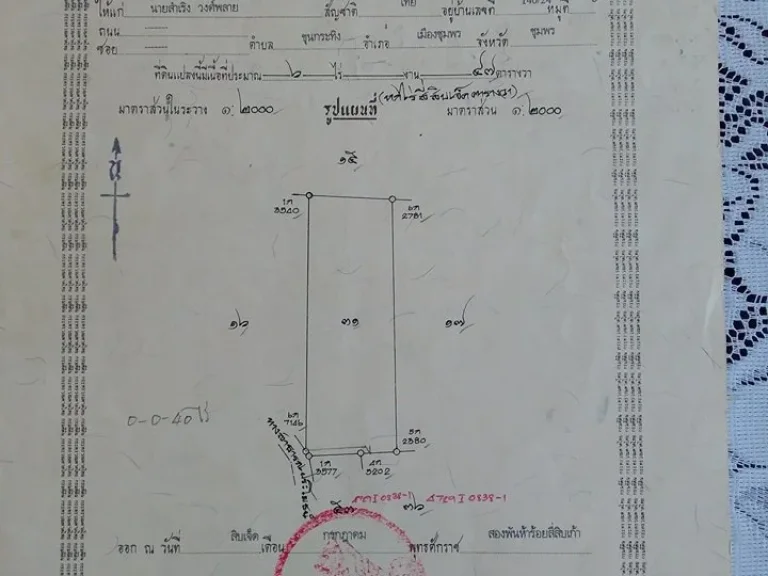 ให้แก่ นายสำเริง วงศ์พลาย สัญชาติ ไทย อยู่บ้านเลขที่ หมู่ที่
ถนน ------
ซอย ------ ตำบล ขุนกระทิง อำเภอ เมืองชุมพร จังหวัด ชุมพร
ที่ดินแปลงนี้มีเนื้อที่ประมาณ ๖ ไร่ งาน ๔๗ ตารางวา
(หกไร่สี่สิบเจ็ดตารางวา)
มาตราส่วนในระวาง ๑: ๒๐๐๐ รูปแผนที่ มาตราส่วน ๑: ๒๐๐๐
๑๕
น
1ค
3540
๖ค
2781
๑๖ ๓๑ ๑๗
0-0-40 ไร่
๒ค
7146
5ค
2380
1ค
3577
4ค
3202
ทางสาธารณประโยชน์
๕๓ ๓๖
ออก ณ วันที่ สิบเจ็ด เดือน กรกฎาคม พุทธศักราช สองพันห้าร้อยสี่สิบเก้า